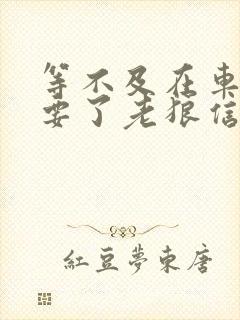 等不及在車
要了老狼信
紅豆夢東唐